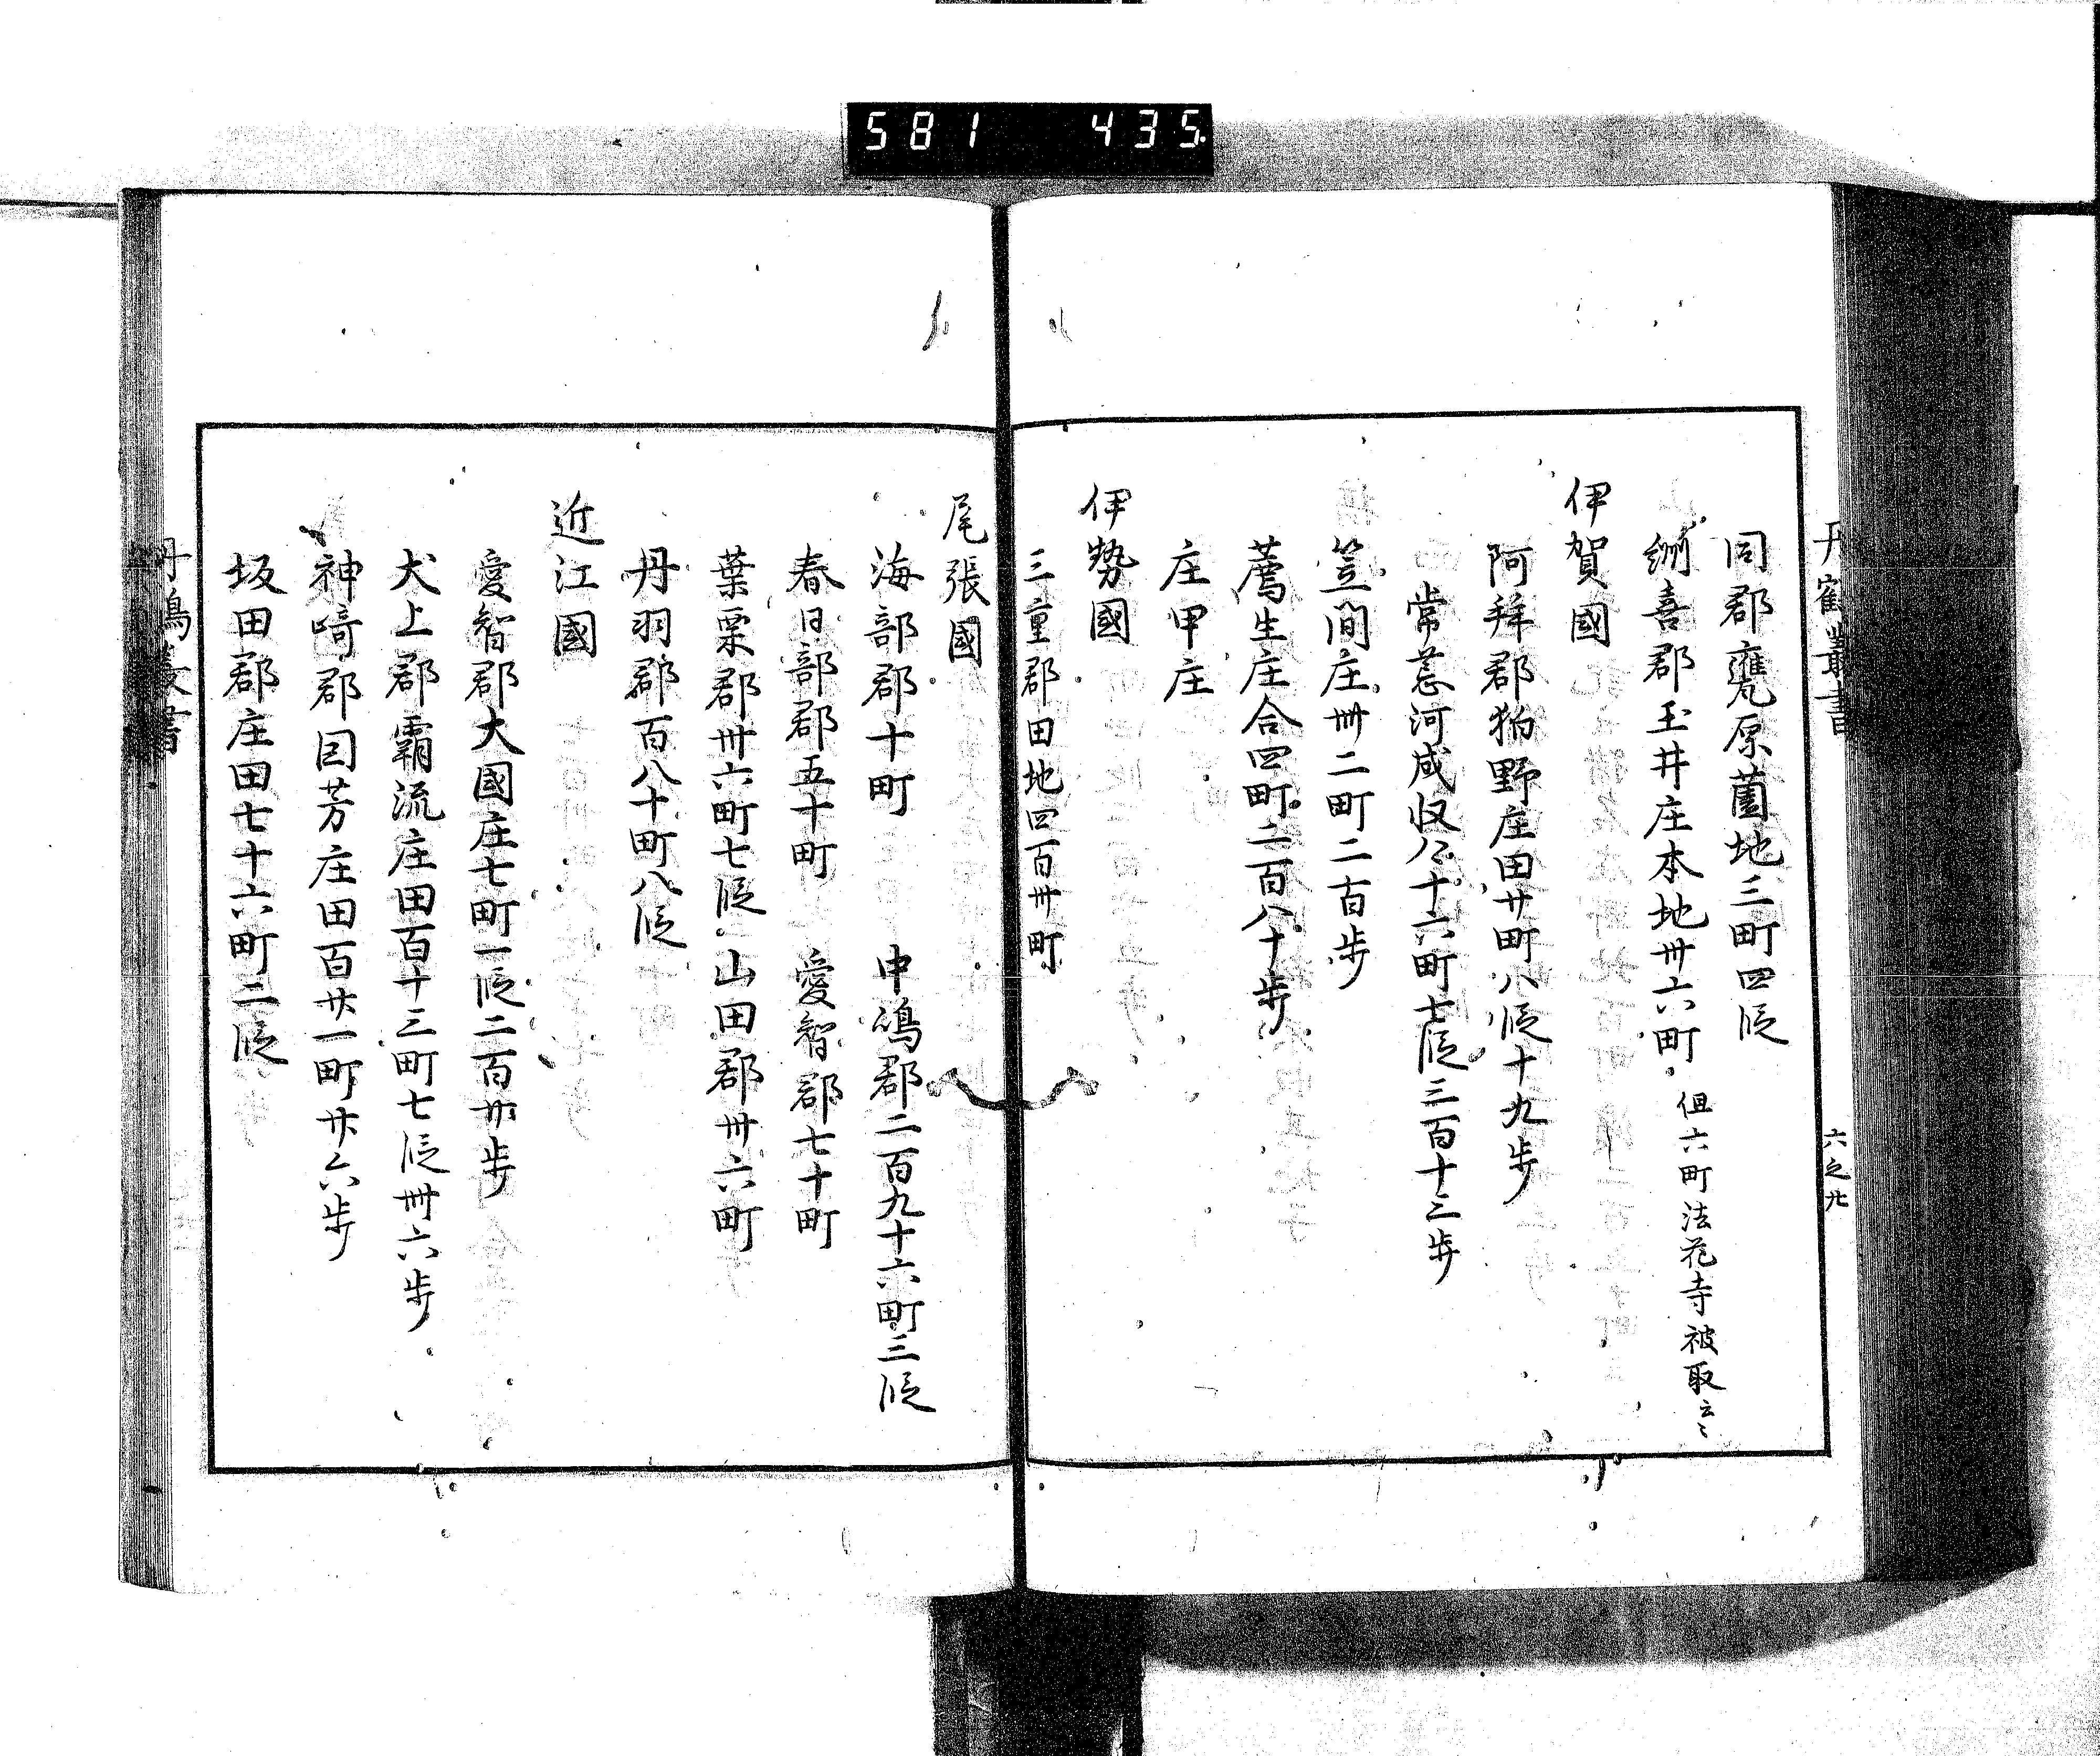 581 435
丹鶴叢書
六之廿
同郡甕原薗地三町四段
綴喜郡玉井庄本地卅六町 但六町法花寺被取云々
伊賀國
阿拜郡柏野庄田廿町八段十九步
常荒河成収公十六町七段三百十三步
笠間庄卅二町二百步
薦生庄合四町二百八十步
庄甲庄
伊勢國
三重郡田地四百卅町
尾張國
海部郡十町 中嶋郡二百九十六町三段
春日部郡五十町 愛智郡七十町
葉栗郡卅六町七段 山田郡卅六町
丹羽郡百八十町八段
近江國
愛智郡大國庄七町一段二百廿步
犬上郡霸流庄田百十三町七段卅六步
神﨑郡因芳庄田百廿一町廿六步
坂田郡庄田七十六町二段
丹鶴叢書